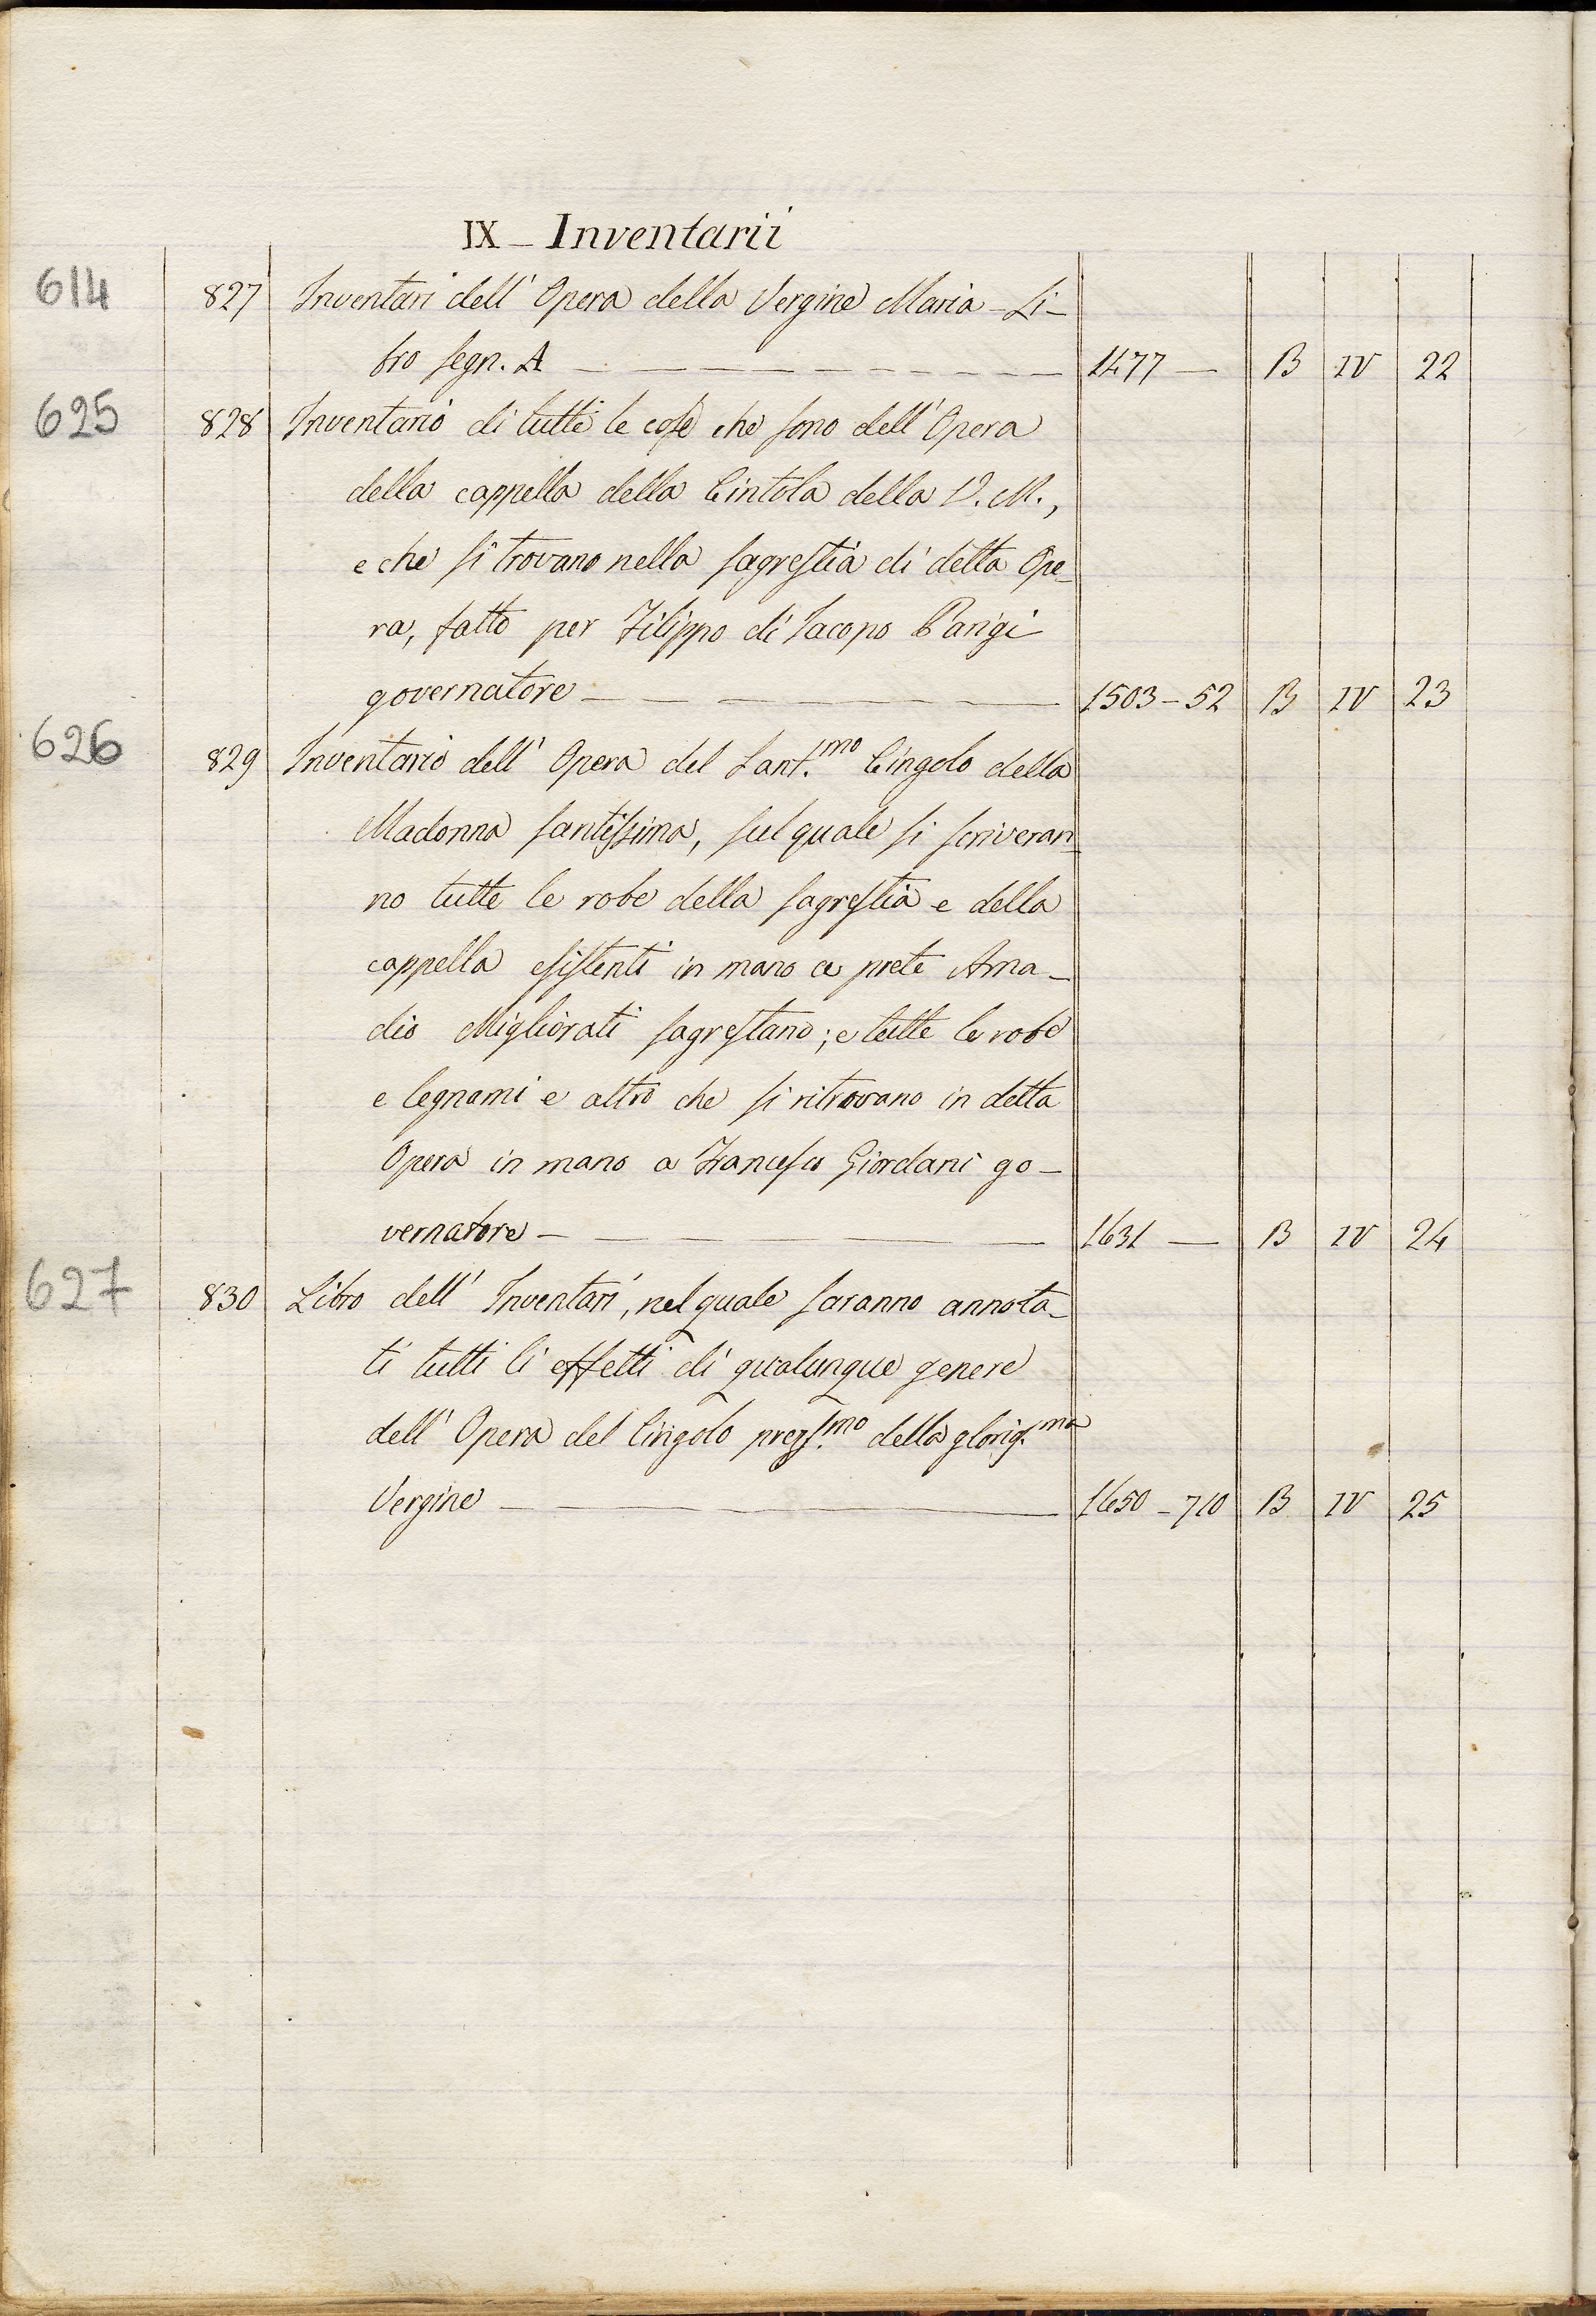 IX – Inventarii
614 827 Inventari dell' Opera della Vergine Maria – Li-
bro segn. A — 1477 — B IV 22
625 828 Inventario di tutte le cose che sono dell' Opera
della cappella della Cintola della V. M.,
e che si trovano nella sagrestia di detta Ope-
ra, fatto per Filippo di Iacopo Parigi
governatore — 1503–52 B IV 23
626 829 Inventario dell' Opera del Sant.mo Cingolo della
Madonna santissima, sul quale si scriveran-
no tutte le robe della sagrestia e della
cappella esistenti in mano a prete Ama-
dio Migliorati sagrestano; e tutte le robe
e legnami e altro che si ritrovano in detta
Opera in mano a Francesco Giordani go-
vernatore — 1631 — B IV 24
627 830 Libro dell' Inventari, nel quale saranno annota-
ti tutti li effetti di qualunque genere
dell' Opera del Cingolo prezs.mo della glorios.ma
Vergine — 1650–710 B IV 25